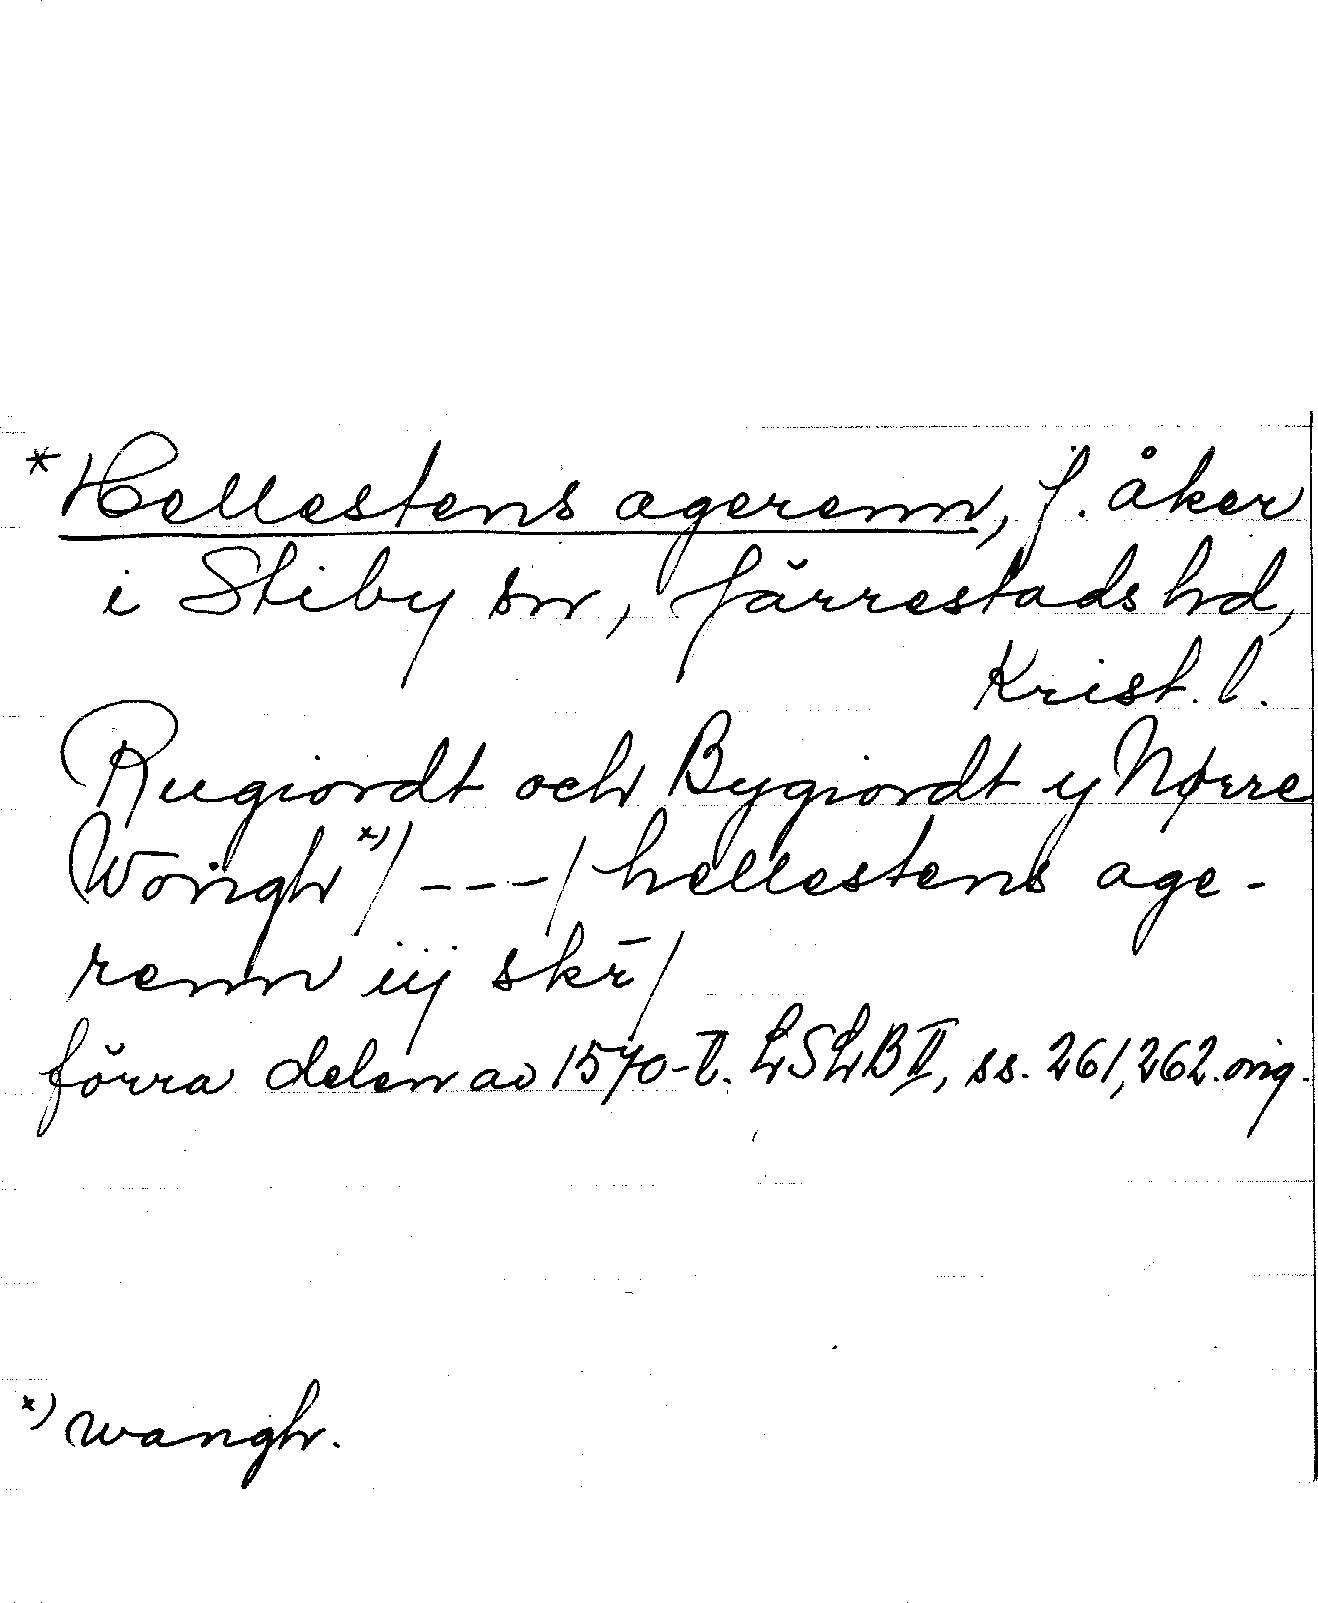 *Hellestens agerenn, f. åker
i Stiby sn, Järrestads hd,
Krist. l.
Rugiordt och Bygiordt y Nørre
Wongh *) / --- / hellestens age-
renn iij skr̄ /
förra delen av 1570-t. LSLB II, ss. 261, 262. orig.
*) wangh.